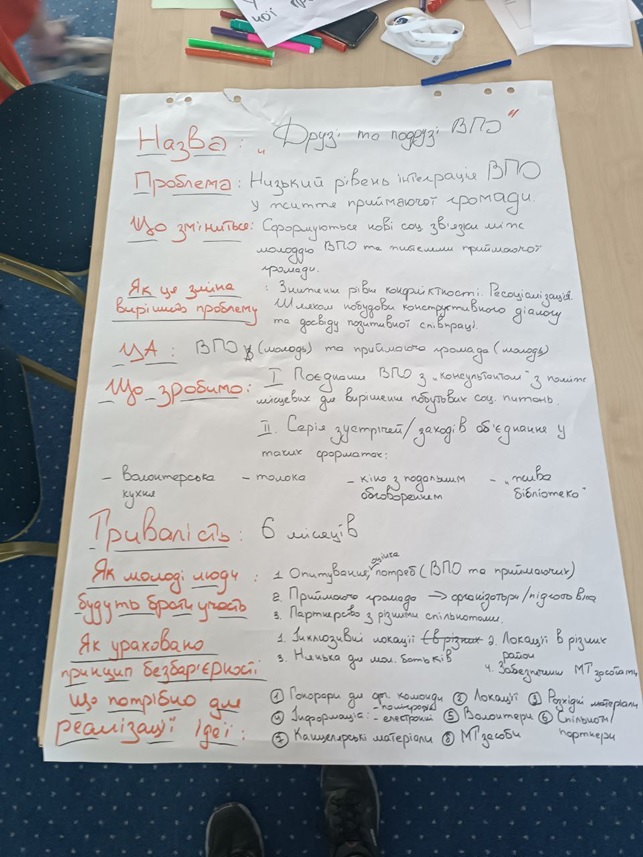 Назва: „ Друзі та подрузі ВПО "
Проблема: Низький рівень інтеграція ВПО
у життя приймаючої громади.
Що зміниться: Сформуються нові соц зв'язки між
молоддю ВПО та жителями приймаючої
громади.
Як ця зміна : Зниження рівня конфліктності. Ресоціалізація.
вирішить проблему Шляхом побудови конструктивного діалогу
та досвіду позитивної співпраці.
ЦА: ВПО (молодь) та приймаюча громада (молодь)
Що зробимо: I Поєднаєм ВПО з „консультантом" з поміж
місцевих для вирішення побутових соц. питань.
II. Серія зустрічей/заходів об'єднання у
таких форматах:
- Волонтерська - толока - кіно з подальшим - „жива
кухня обговоренням бібліотека"
Тривалість: 6 місяців
Як молоді люди : 1. Опитування, оцінка потреб (ВПО та приймаючих)
будуть брати участь 2. Приймаюча громада → організатори/
3. Партнерство з різними спільнотами.
Як ураховано : 1. Інклюзивні локації (в різних 2. Локації в різних
район.
принцип безбар'єрності: 3. Нянька для мол. батьків 4. Забезпечення МТ засобами
Що потрібно для ① Гонорари для орг. команди ② Локації ③ Розхідні матеріали
реалізації ідеї: ④ Інформація: - поліграфія - електронні ⑤ Волонтери ⑥ Спільноти
партнери
⑦ Канцелярські матеріали ⑧ МТ засоби